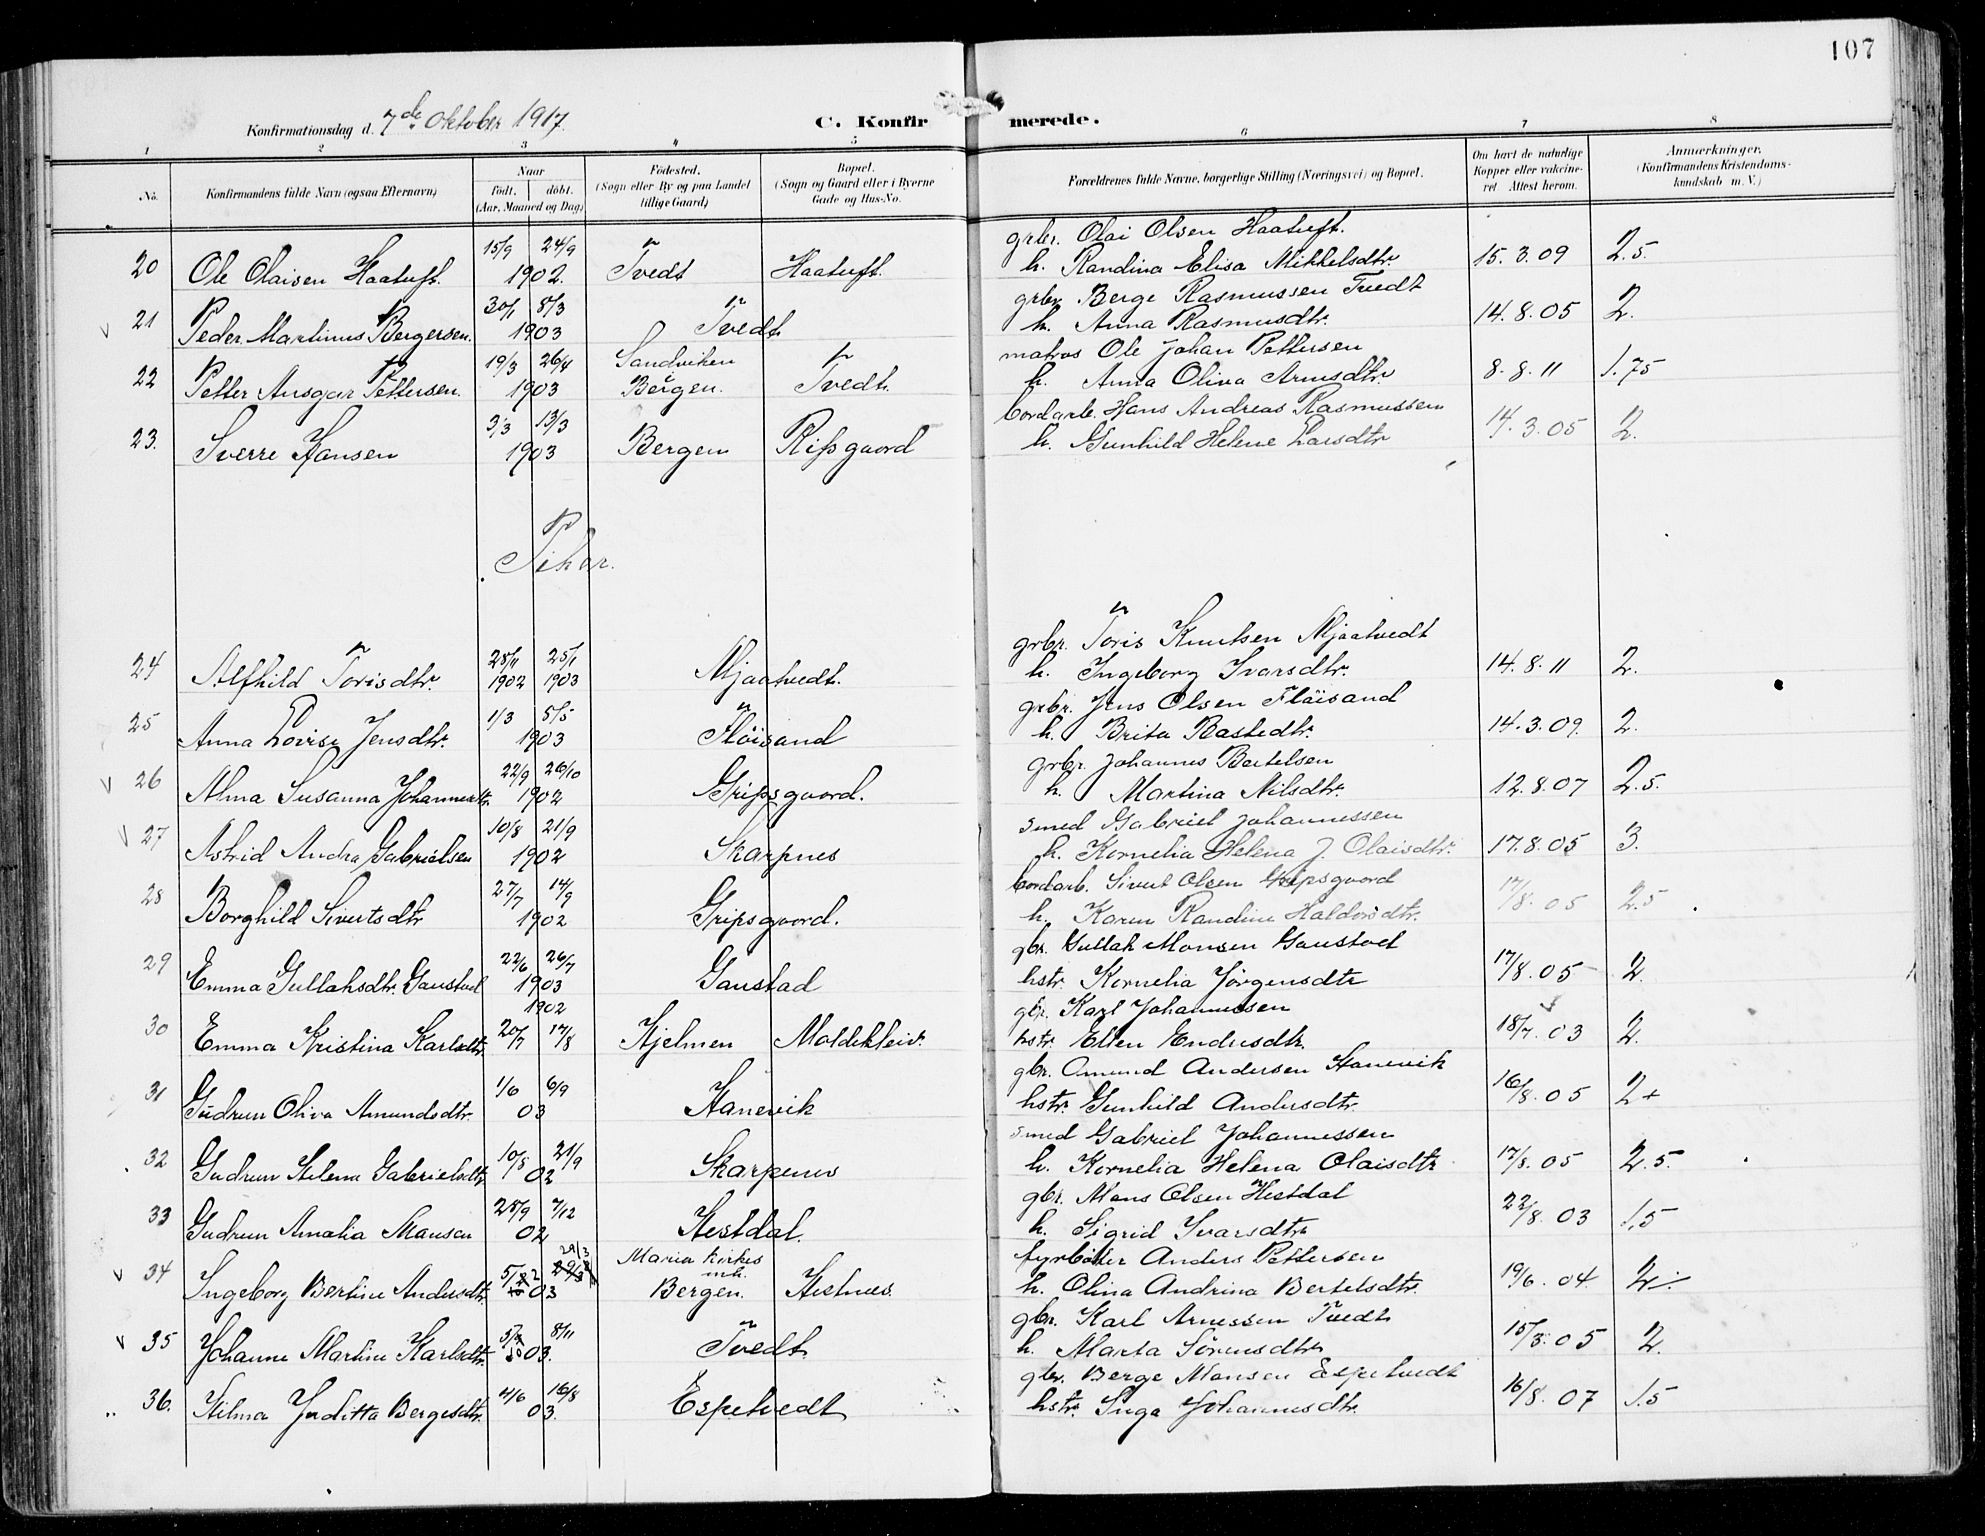 107
Konfirmationsdag d. 7de Oktober 1917.
C. Konfirmerede.
1 2 3 4 5 6 7 8
No. Konfirmandens fulde Navn (ogsaa Efternavn) Naar født, døbt. (Aar, Maaned og Dag) Fødested. (Sogn eller By og paa Landet tillige Gaard) Bopæl. (Sogn og Gaard eller i Byerne Gade og Hus-No. Forældrenes fulde Navne, borgerlige Stilling (Næringsvei) og Bopæl. Om havt de naturlige Kopper eller vakcineret Attest herom. Anmærkninger. (Konfirmandens Kristendomskundskab m. V.)
grbr. Olai Olsen Haatuft.
20 Ole Olaisen Haatuft. 15/9 24/9 1902. Tvedt Haatuft. h. Randina Elisa Mikkelsdtr. 15.3.09 2.5.
grbr. Berge Rasmussen Tvedt
21 Peder Martinus Bergersen. 30/1 8/3 1903 Tvedt h. Anna Rasmusdtr. 14.8.05 2.
matros Ole Johan Pettersen
22 Petter Ansgar Pettersen. 19/3 26/4 1903 Sandviken Bergen. Tvedt. h. Anna Oliva Arnesdtr. 8.8.11 1.75
bordarb. Hans Andreas Rasmussen
23. Sverre Hansen 3/3 13/3 1903 Bergen Ripsgaard h. Gunhild Helene Larsdtr 14.3.05 2.
Piker.
grbr. Toris Knutsen Mjaatvedt
24 Alfhild Torisdtr. 28/11 1902 25/1 1903 Mjaatvedt. h. Ingeborg Ivarsdtr. 14.8.11 2.
grbr. Jens Olsen Fläisand
25 Anna Lovise Jensdtr. 1/3 5/5 1903 Flöisand h. Brita Rastedtr. 14.3.09. 2.
grbr. Johannes Bertelsen
26 Alma Susanna Johannesdtr. 22/9 26/10 1902 Gripsgaard. h. Martina Nilsdtr. 12.8.07 2.5.
smed Gabriel Johannessen
27 Astrid Andra Gabrielsen 10/8 21/9 1902 Skarpnes h. Kornelia Helena J. Olaisdtr. 17.8.05 3.
bordarb. Sivert Olsen Gripsgaard
28 Borghild Sivertsdtr 27/7 14/9 1902 Gripsgaard. h. Karen Randine Haldorsdtr. 17/8.05 2.5
gbr. Gullak Monsen Gaustad
29 Emma Gullaksdtr. Gaustad 22/6 26/7 1903 Gaustad hstr. Kornelia Jørgensdtr 17/8.05 2.
gbr. Karl Johannessen
30 Emma Kristina Karlsdtr. 1902 20/7 17/8 Hjelmen Moldekleiv. hstr. Ellen Endresdtr. 18/7.03 2.
gbr. Amund Andersen Hanevik
31 Gudrun Oliva Amundsdtr. 1/6 6/9 03 Hanevik hstr. Gunhild Andersdtr. 16/8.05 2+
smed Gabriel Johannessen
32 Gudrun Helena Gabrielsdtr. 10/8 21/9 02 Skarpenes h. Kornelia Helena Olaisdtr 17/8.05 2.5.
gbr. Mons Olsen Hestdal
33 Gudrun Amalia Monsen 28/9 7/12 02 Hestdal. h. Sigrid Ivarsdtr 22/8.03 1.5
fyrbøter Anders Pettersen
34 Ingeborg Bertine Andersdtr. 29/3 03 Maria kirkes mh. Bergen. Hestnes. h. Olina Andrina Bertelsdtr. 19/6.04 2÷
gbr. Karl Arnessen Tvedt
35 Johanne Martine Karlsdtr. 8/11 03. Tvedt. h. Marta Sörensdtr 15/3.05 2.
gbr. Berge Monsen Espetvedt
36. Hilma Juditta Bergesdtr. 4/6 16/8 03. Espetvedt hstr. Inga Johannesdtr. 16/8.07 1.5